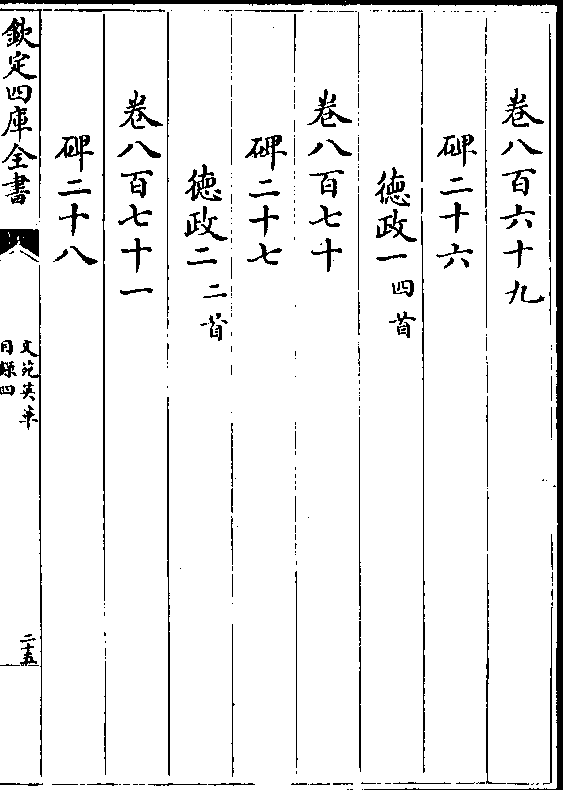 卷八百六十九
碑二十六
徳政一四首
卷八百七十
碑二十七
徳政二二首
卷八百七十一
碑二十八
欽定四庫全書
文苑英華
目録四
二十五